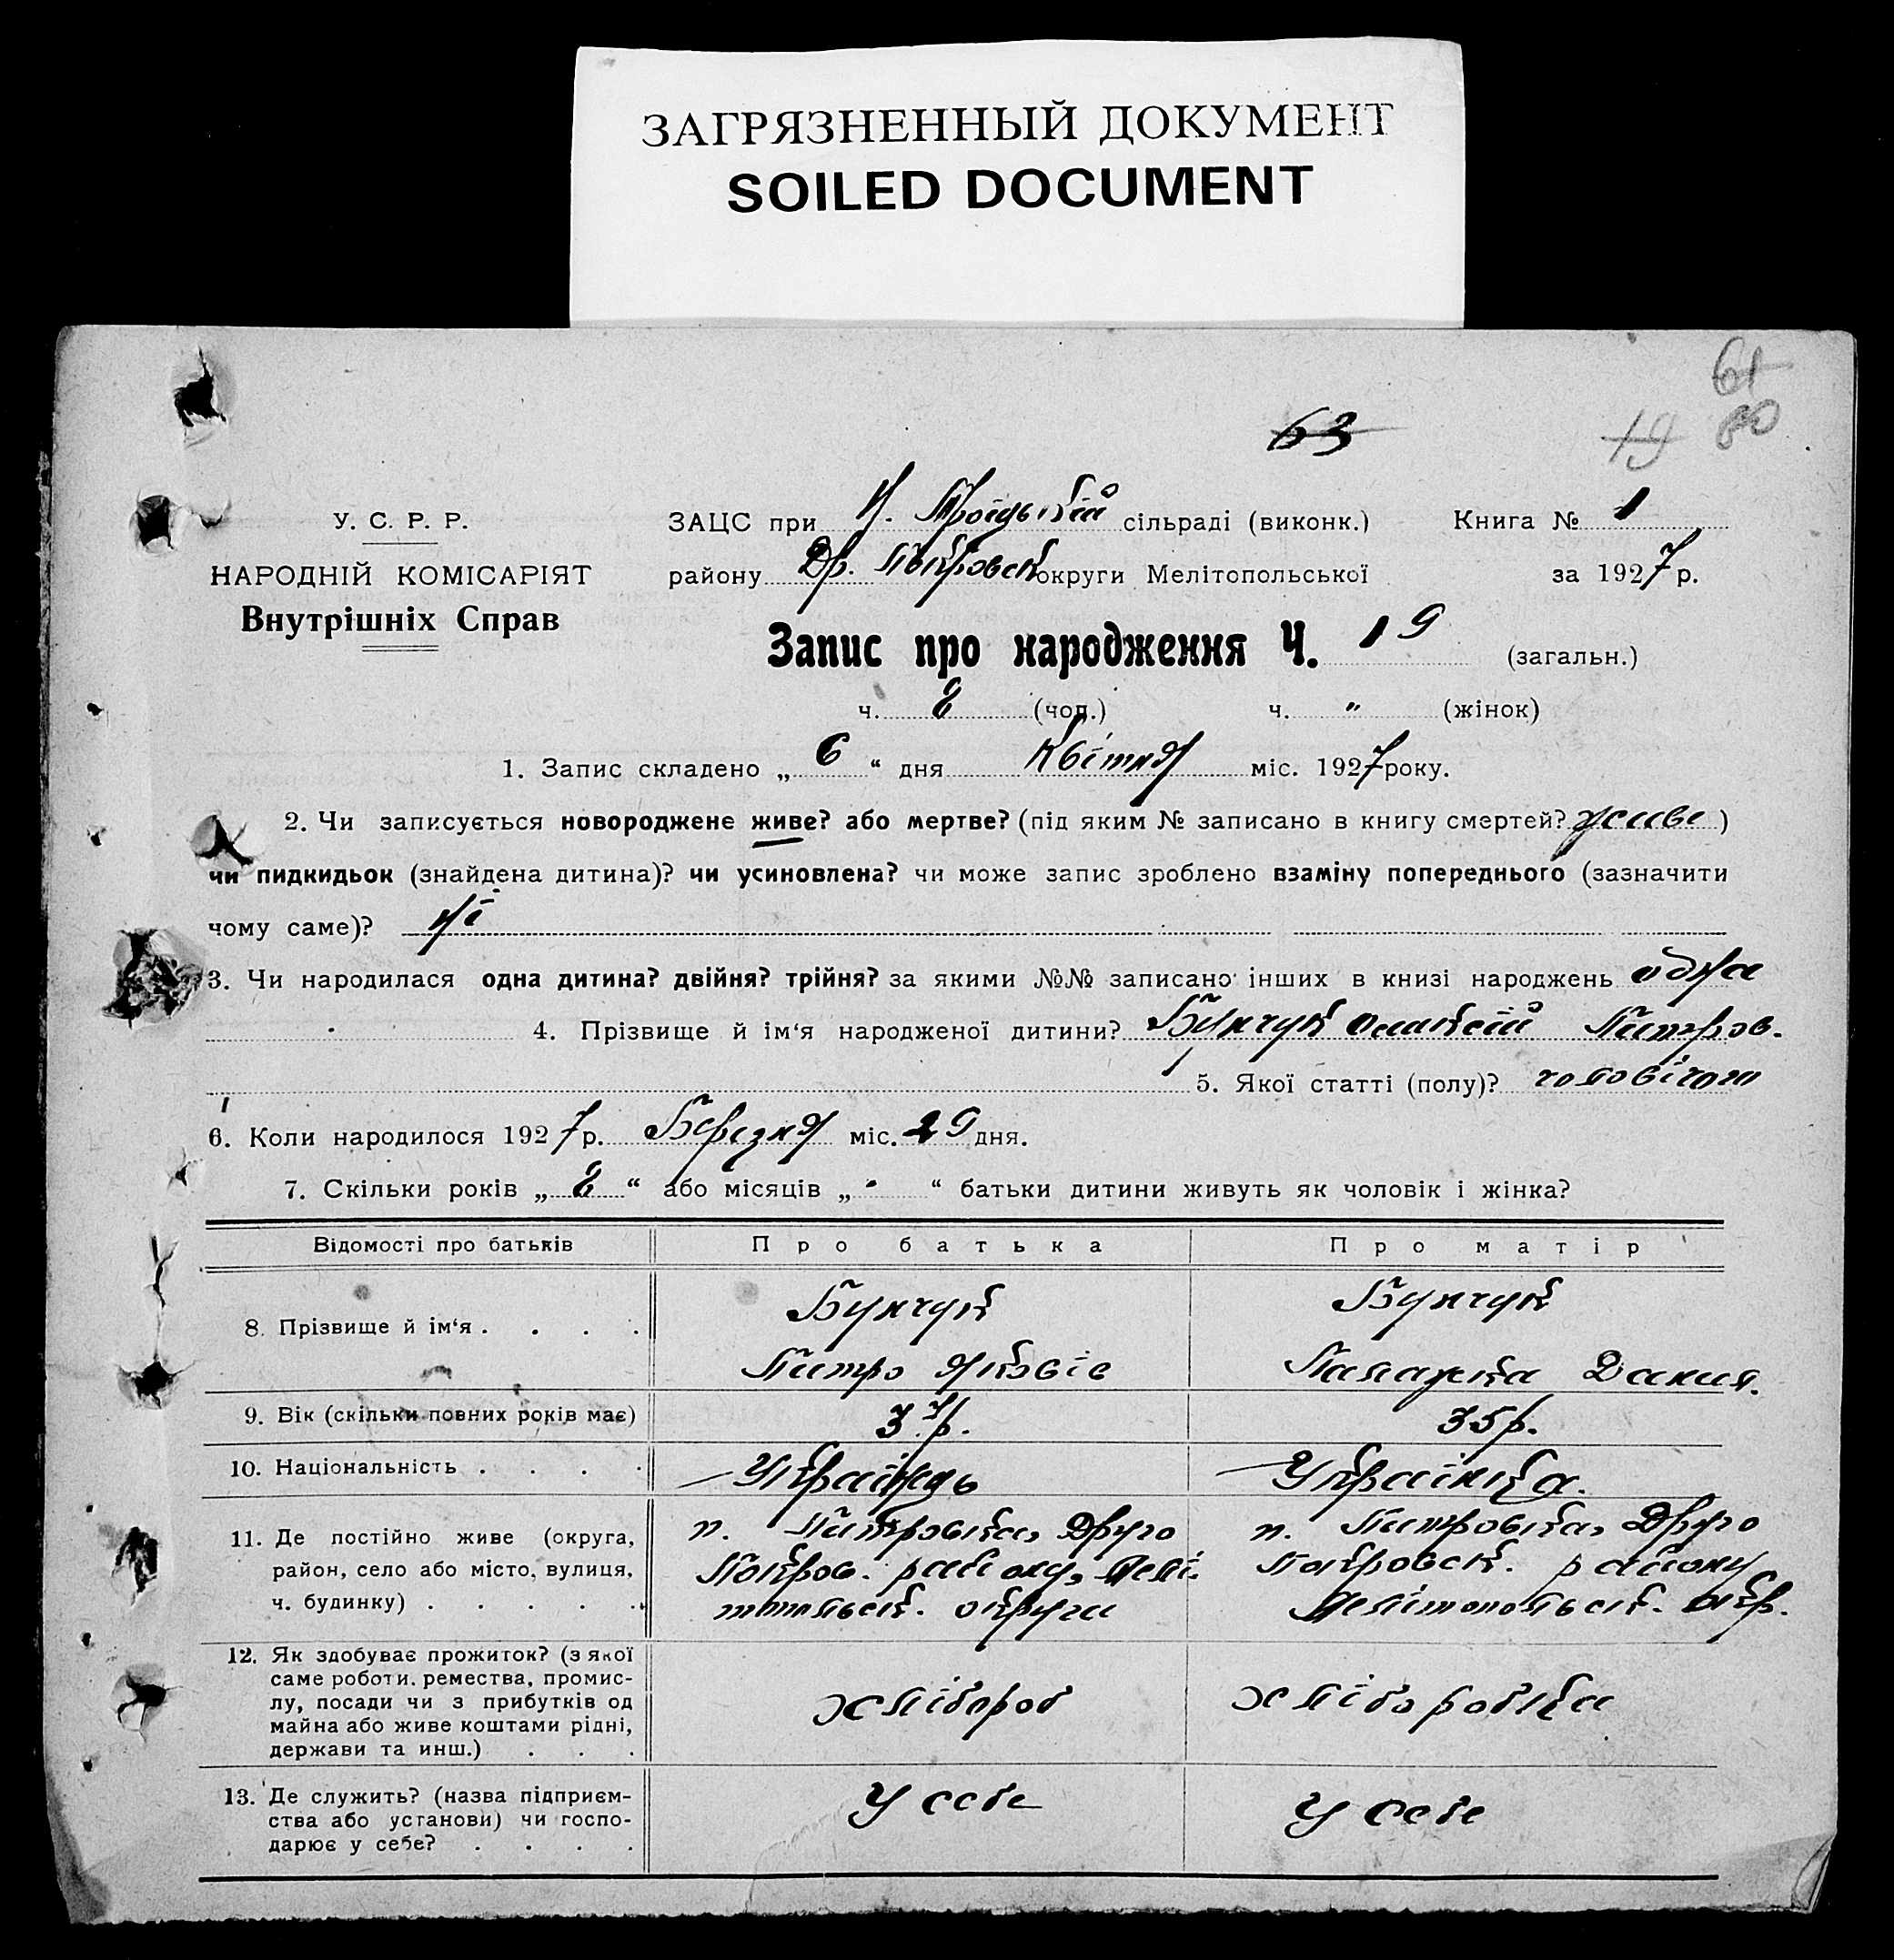 ЗАГРЯЗНЕННЫЙ ДОКУМЕНТ
SOILED DOCUMENT
61
63 19 80
У. С. Р. Р.
НАРОДНІЙ КОМІСАРІЯТ
Внутрішніх Справ
ЗАЦС при Н. Троїцькій сільраді (виконк.) Книга № 1
району Др. Покровськ округи Мелітопольської за 1927 р.
Запис про народження Ч. 19 (загальн.)
ч. 8 (чол.) ч. " (жінок)
1. Запис складено „ 6 “ дня Квітня міс. 1927 року.
2. Чи записується новороджене живе? або мертве? (під яким № записано в книгу смертей? живе )
чи пидкидьок (знайдена дитина)? чи усиновлена? чи може запис зроблено взаміну попереднього (зазначити
чому саме)? ні
3. Чи народилася одна дитина? двійня? трійня? за якими №№ записано інших в книзі народжень одна
4. Прізвище й ім‘я народженої дитини? Бунчук Олексій Питров.
5. Якої статті (полу)? чоловічої
6. Коли народилося 1927 р. Березня міс. 29 дня.
7. Скільки років „ 8 “ або місяців „ “ батьки дитини живуть як чоловік і жінка?
Відомості про батьків Про батька Про матір
8. Прізвище й ім‘я . . . . Бунчук Бунчук
Питро Яковів Палажка Данил.
9. Вік (скільки повних років має) 37 р. 35 р.
10. Національність . . . . Українць Українка.
11. Де постійно живе (округа, район, село або місто, вулиця, ч. будинку) . . . . .
п. Питровка, Друго п. Питровка, Друго
Покров. району, Мелі- Покровськ. району
топольськ. округи Мелітопольськ. окр.
12. Як здобуває прожиток? (з якої
саме роботи. ремества, промис-
лу, посади чи з прибутків од
майна або живе коштами рідні,
держави та инш.) . . .
хлібороб хліборобка
13. Де служить? (назва підприєм-
ства або установи) чи госпо-
дарює у себе? . . . .
У себе У себе